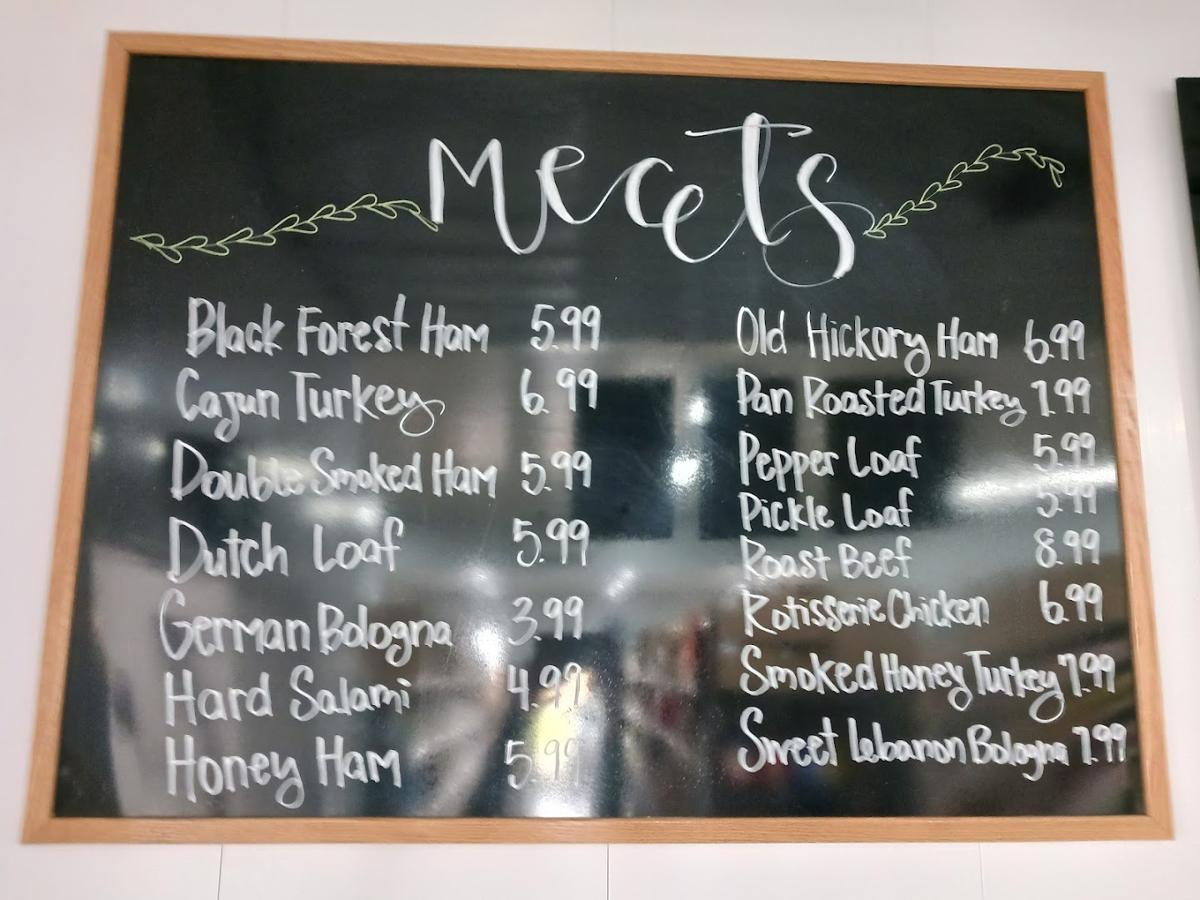 Meats
Black Forest Ham 5.99
Cajun Turkey 6.99
Double Smoked Ham 5.99
Dutch Loaf 5.99
German Bologna 3.99
Hard Salami 4.99
Honey Ham 5.99
Old Hickory Ham 6.99
Pan Roasted Turkey 7.99
Pepper Loaf 5.99
Pickle Loaf 5.99
Roast Beef 8.99
Rotisserie Chicken 6.99
Smoked Honey Turkey 7.99
Sweet Lebanon Bologna 7.99